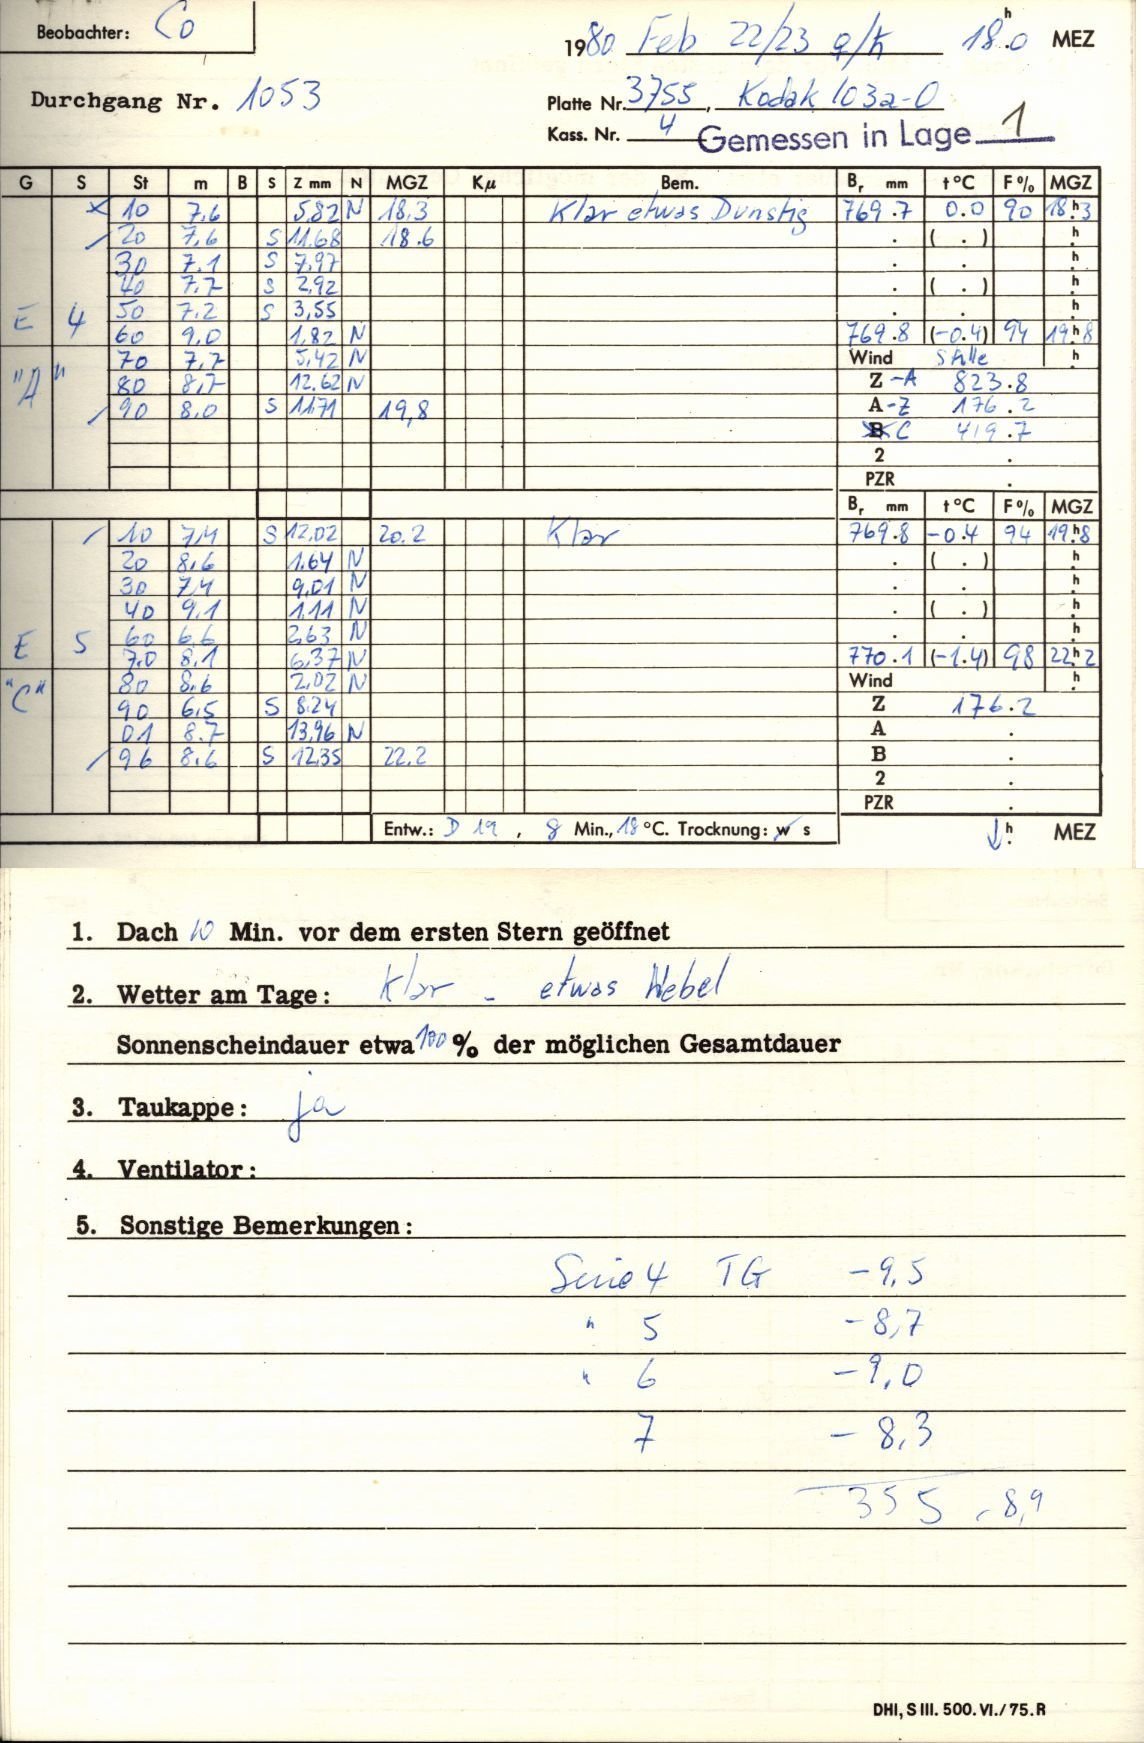 Beobachter: Co
1980 Feb 22/23 a/h 18.0 h MEZ
Durchgang Nr. 1053
Platte Nr. 3755, Kodak 103a-O
Kass. Nr. 4 Gemessen in Lage 1
G S St m B S Z mm N MGZ Kμ Bem. Br mm t °C F % MGZ
x 10 7,6 5,82 N 18,3 Klar etwas Dunstig 769.7 0.0 90 18h3
/ 20 7,6 S 11.68 18.6 ( . ) h
30 7.1 S 7,97 h
40 7,7 S 2,92 ( . ) h
E 4 50 7.2 S 3,55 h
60 9,0 1,82 N 769.8 (-0.4) 94 19h8
"A" 70 7,7 5,42 N Wind Stille h
80 8,7 12.62 N Z-A 823.8
/ 90 8,0 S 11.71 19,8 A-Z 176.2
B C 419.7
2 .
PZR .
Br mm t °C F % MGZ
/ 10 7,4 S 12,02 20.2 Klar 769.8 -0.4 94 19h8
20 8,6 1.64 N ( . ) h
30 7,4 9,01 N h
40 9,1 1,11 N ( . ) h
E 5 60 6,6 2,63 N h
7.0 8,1 6,37 N 770.1 (-1.4) 98 22h2
"C" 80 8,6 2,02 N Wind h
90 6,5 S 8.24 Z 176.2
01 8.7 13,96 N A .
/ 96 8,6 S 12,35 22.2 B .
2 .
PZR .
Entw.: D 19, 8 Min., 18 °C. Trocknung: w s h MEZ
1. Dach 10 Min. vor dem ersten Stern geöffnet
2. Wetter am Tage: klar - etwas Nebel
Sonnenscheindauer etwa 100 % der möglichen Gesamtdauer
3. Taukappe: ja
4. Ventilator:
5. Sonstige Bemerkungen:
Serie 4 TG -9,5
" 5 -8,7
" 6 -9,0
7 -8,3
355 -8,9
DHI, S III. 500. VI./75. R